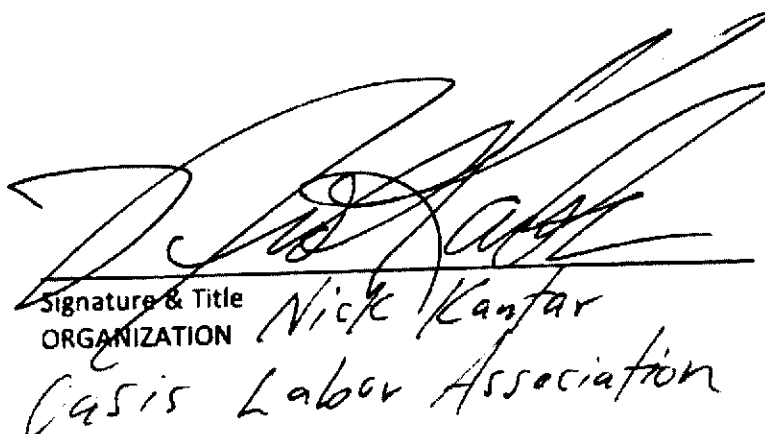 Signature & Title Nick Kantar
ORGANIZATION
Oasis Labor Association